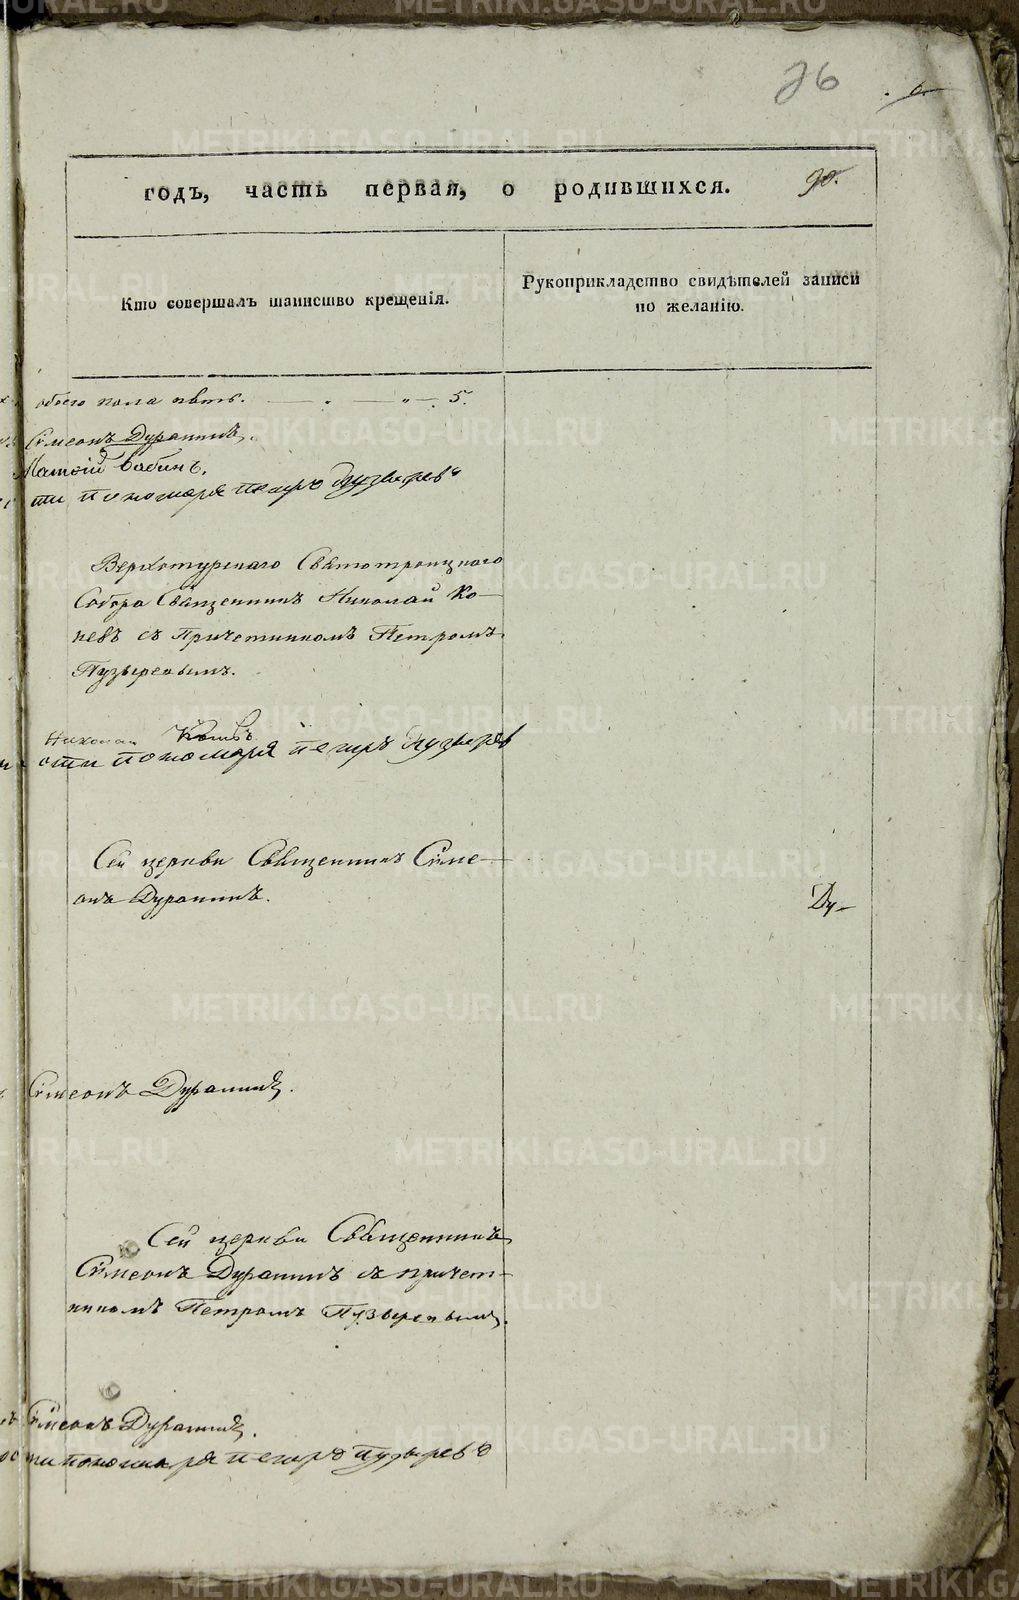 26
годъ, часть первая, о родившихся.
90.
Кто совершалъ таинство крещенія.
Рукоприкладство свидѣтелей записи
по желанію.
обоего пола пять. 5.
Симеонъ Дуранинъ.
Бабинъ.
пономаря петръ Пузыревъ
Верхотурскаго Святотроицкаго
Собора Священникъ Николай Ко-
невъ съ Причетникомъ Петромъ
Пузыревымъ.
Николай Коневъ
сти пономаря петръ Пузыревъ
Сей церкви Священникъ Симе-
онъ Дуранинъ.
Ду-
Симеонъ Дуранинъ.
Сей церкви Священникъ
Симеонъ Дуранинъ съ причет-
никомъ Петромъ Пузыревымъ.
Симеонъ Дуранинъ.
сти пономаря петръ пузыревъ
METRIKI.GASO-URAL.RU